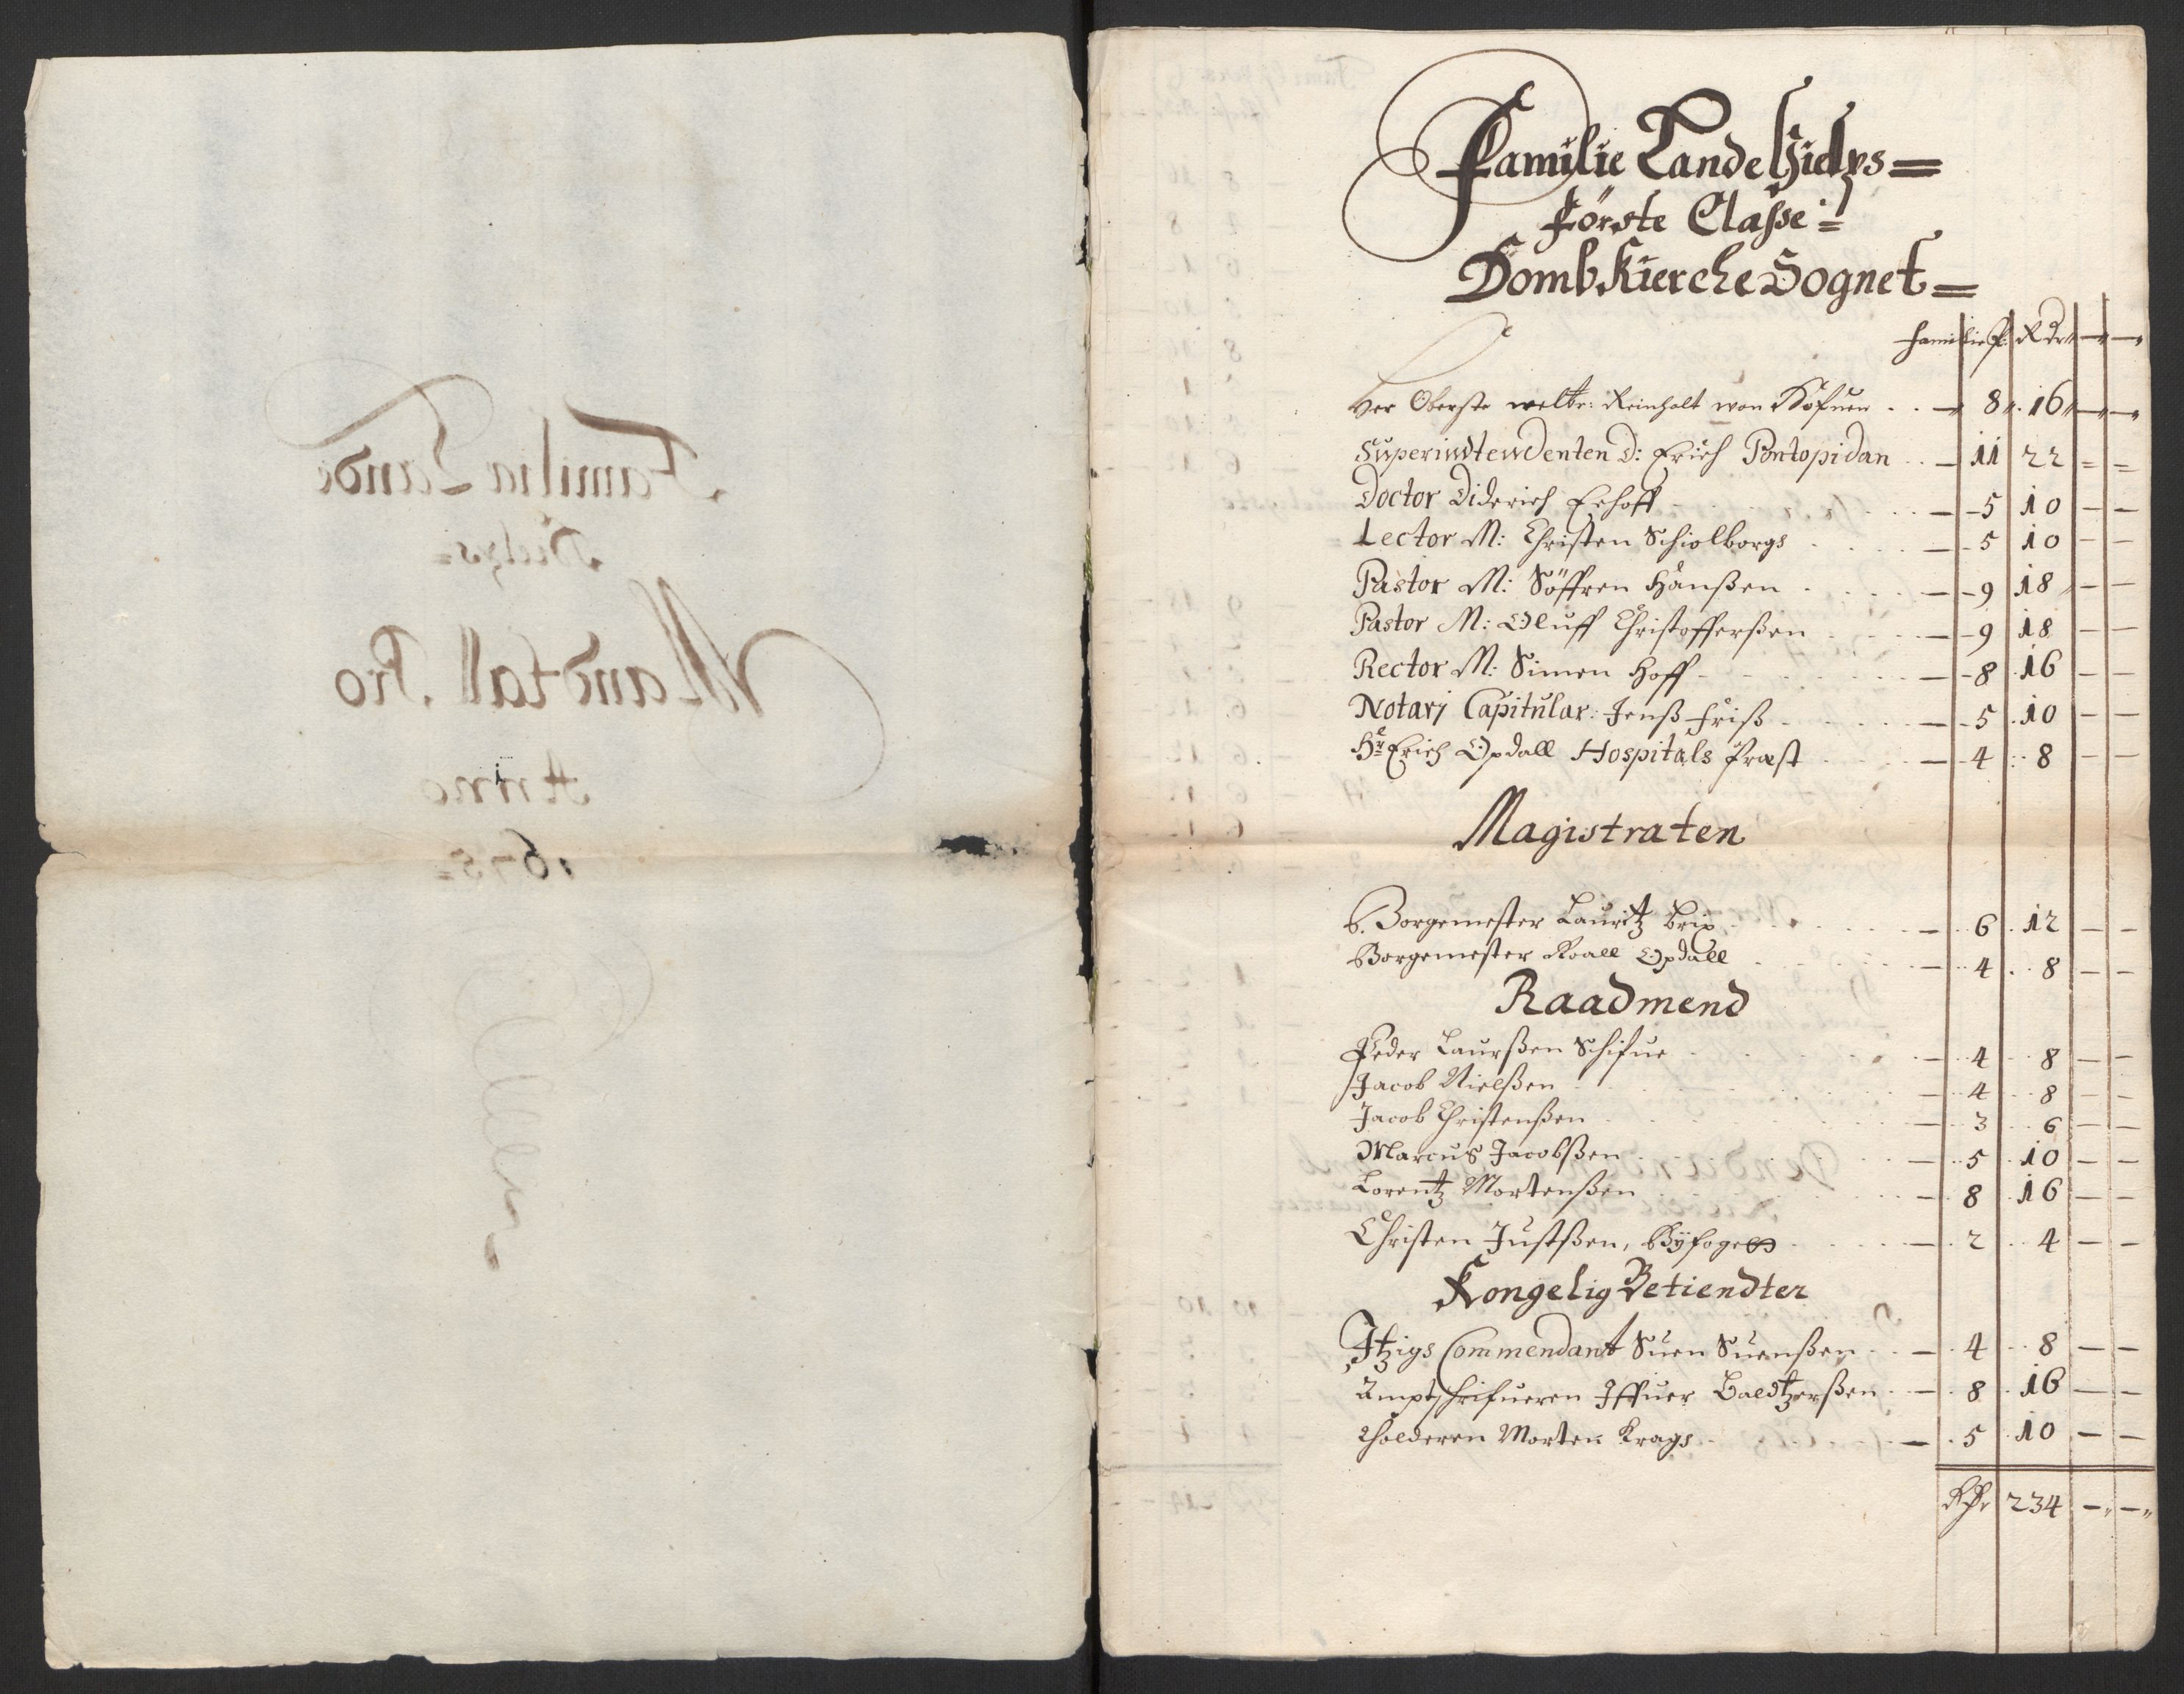 Familia Lande
Hielps=
Mandtall Pro
Anno
1678=
Familie Lande Hielps=
Förste Classe:=
Domb Kierche Sognet=
Familie P: Rdr
Her Oberste welbr: Reinholt von Hofuen 8 16
Superintendenten D: Erich Pontopidan 11 22
Doctor Diderich Erhoff 5 10
Lector M: Christen Schiolborgs 5 10
Pastor M: Söffren Hanßen 9 18
Pastor M: Oluff Christofferßen 9 18
Rector M: Simen Hoff 8 16
Notarj Capitular: Jenß Friß 5 10
Hr Erich Opdall Hospitals Præst 4 8
Magistraten
B. Borgemester Lauritz Brix 6 12
Borgemester Roall Opdall 4 8
Raadmend
Peder Laurßen Schifue 4 8
Jacob Nielßen 4 8
Jacob Christenßen 3 6
Marcus Jacobßen 5 10
Lorentz Mortenßen 8 16
Christen Justßen, Byfoged 2 4
Kongelig Betiendter
Itzigs Commendant Suen Suenßen 4 8
Amptschrifueren Iffuer Baldtzerßen 8 16
Tholderen Morten Krags 5 10
234